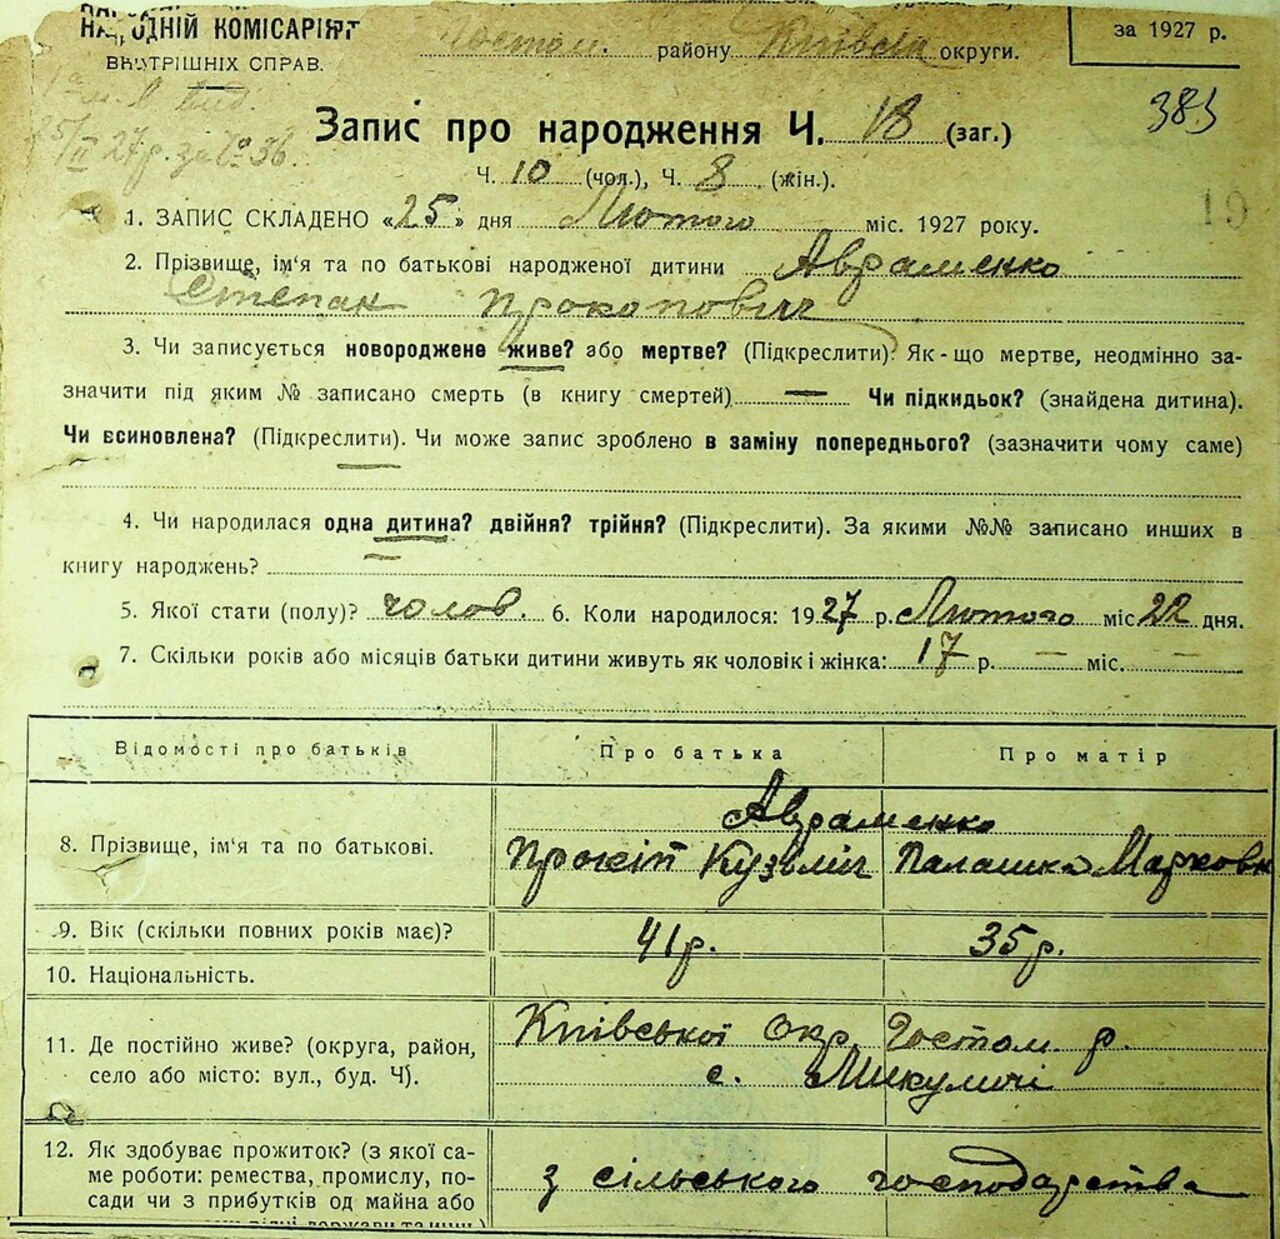 НАРОДНІЙ КОМІСАРІЯТ
ВНУТРІШНІХ СПРАВ.
Гостом. району Київськ округи.
за 1927 р.
383
25/II 27 р. за № 36.
Запис про народження Ч. 18 (заг.)
Ч. 10 (чол.), Ч. 8 (жін.).
19
1. ЗАПИС СКЛАДЕНО «25» дня Лютого міс. 1927 року.
2. Прізвище, ім'я та по батькові народженої дитини Авраменко
Степан Прокопович
3. Чи записується новороджене живе? або мертве? (Підкреслити). Як-що мертве, неодмінно за-
значити під яким № записано смерть (в книгу смертей) — Чи підкидьок? (знайдена дитина).
Чи всиновлена? (Підкреслити). Чи може запис зроблено в заміну попереднього? (зазначити чому саме)
4. Чи народилася одна дитина? двійня? трійня? (Підкреслити). За якими №№ записано инших в
книгу народжень?
5. Якої стати (полу)? чолов. 6. Коли народилося: 1927 р. Лютого міс 22 дня.
7. Скільки років або місяців батьки дитини живуть як чоловік і жінка: 17 р. — міс. —
Відомості про батьків Про батька Про матір
Авраменко
8. Прізвище, ім'я та по батькові. Прокіп Кузьмич Палашка Марковн
9. Вік (скільки повних років має)? 41 р. 35 р.
10. Національність.
Київської Окр. Гостом. р.
11. Де постійно живе? (округа, район,
село або місто: вул., буд. Ч). с. Микуличі
12. Як здобуває прожиток? (з якої са-
ме роботи: ремества, промислу, по-
сади чи з прибутків од майна або
з сільського господарства